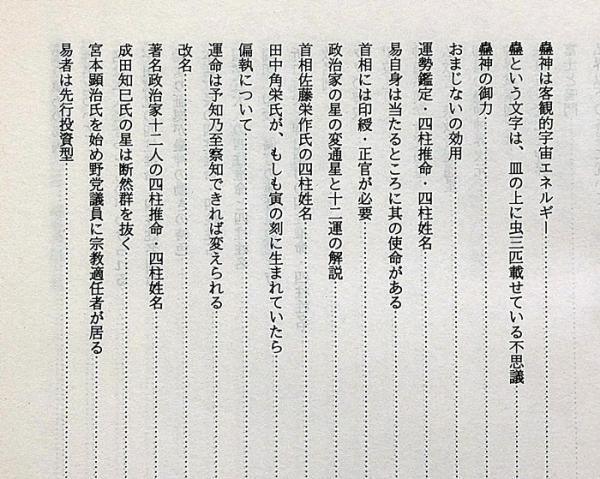 蠱神は客観的宇宙エネルギー
蠱という文字は、皿の上に虫三匹載せている不思議
蠱神の御力
おまじないの効用
運勢鑑定・四柱推命・四柱姓名
易自身は当たるところに其の使命がある
首相には印綬・正官が必要
政治家の星の変通星と十二運の解説
首相佐藤栄作氏の四柱姓名
田中角栄氏が、もしも寅の刻に生まれていたら
偏執について
運命は予知乃至察知できれば変えられる
改名
著名政治家十二人の四柱推命・四柱姓名
成田知巳氏の星は断然群を抜く
宮本顕治氏を始め野党議員に宗教適任者が居る
易者は先行投資型